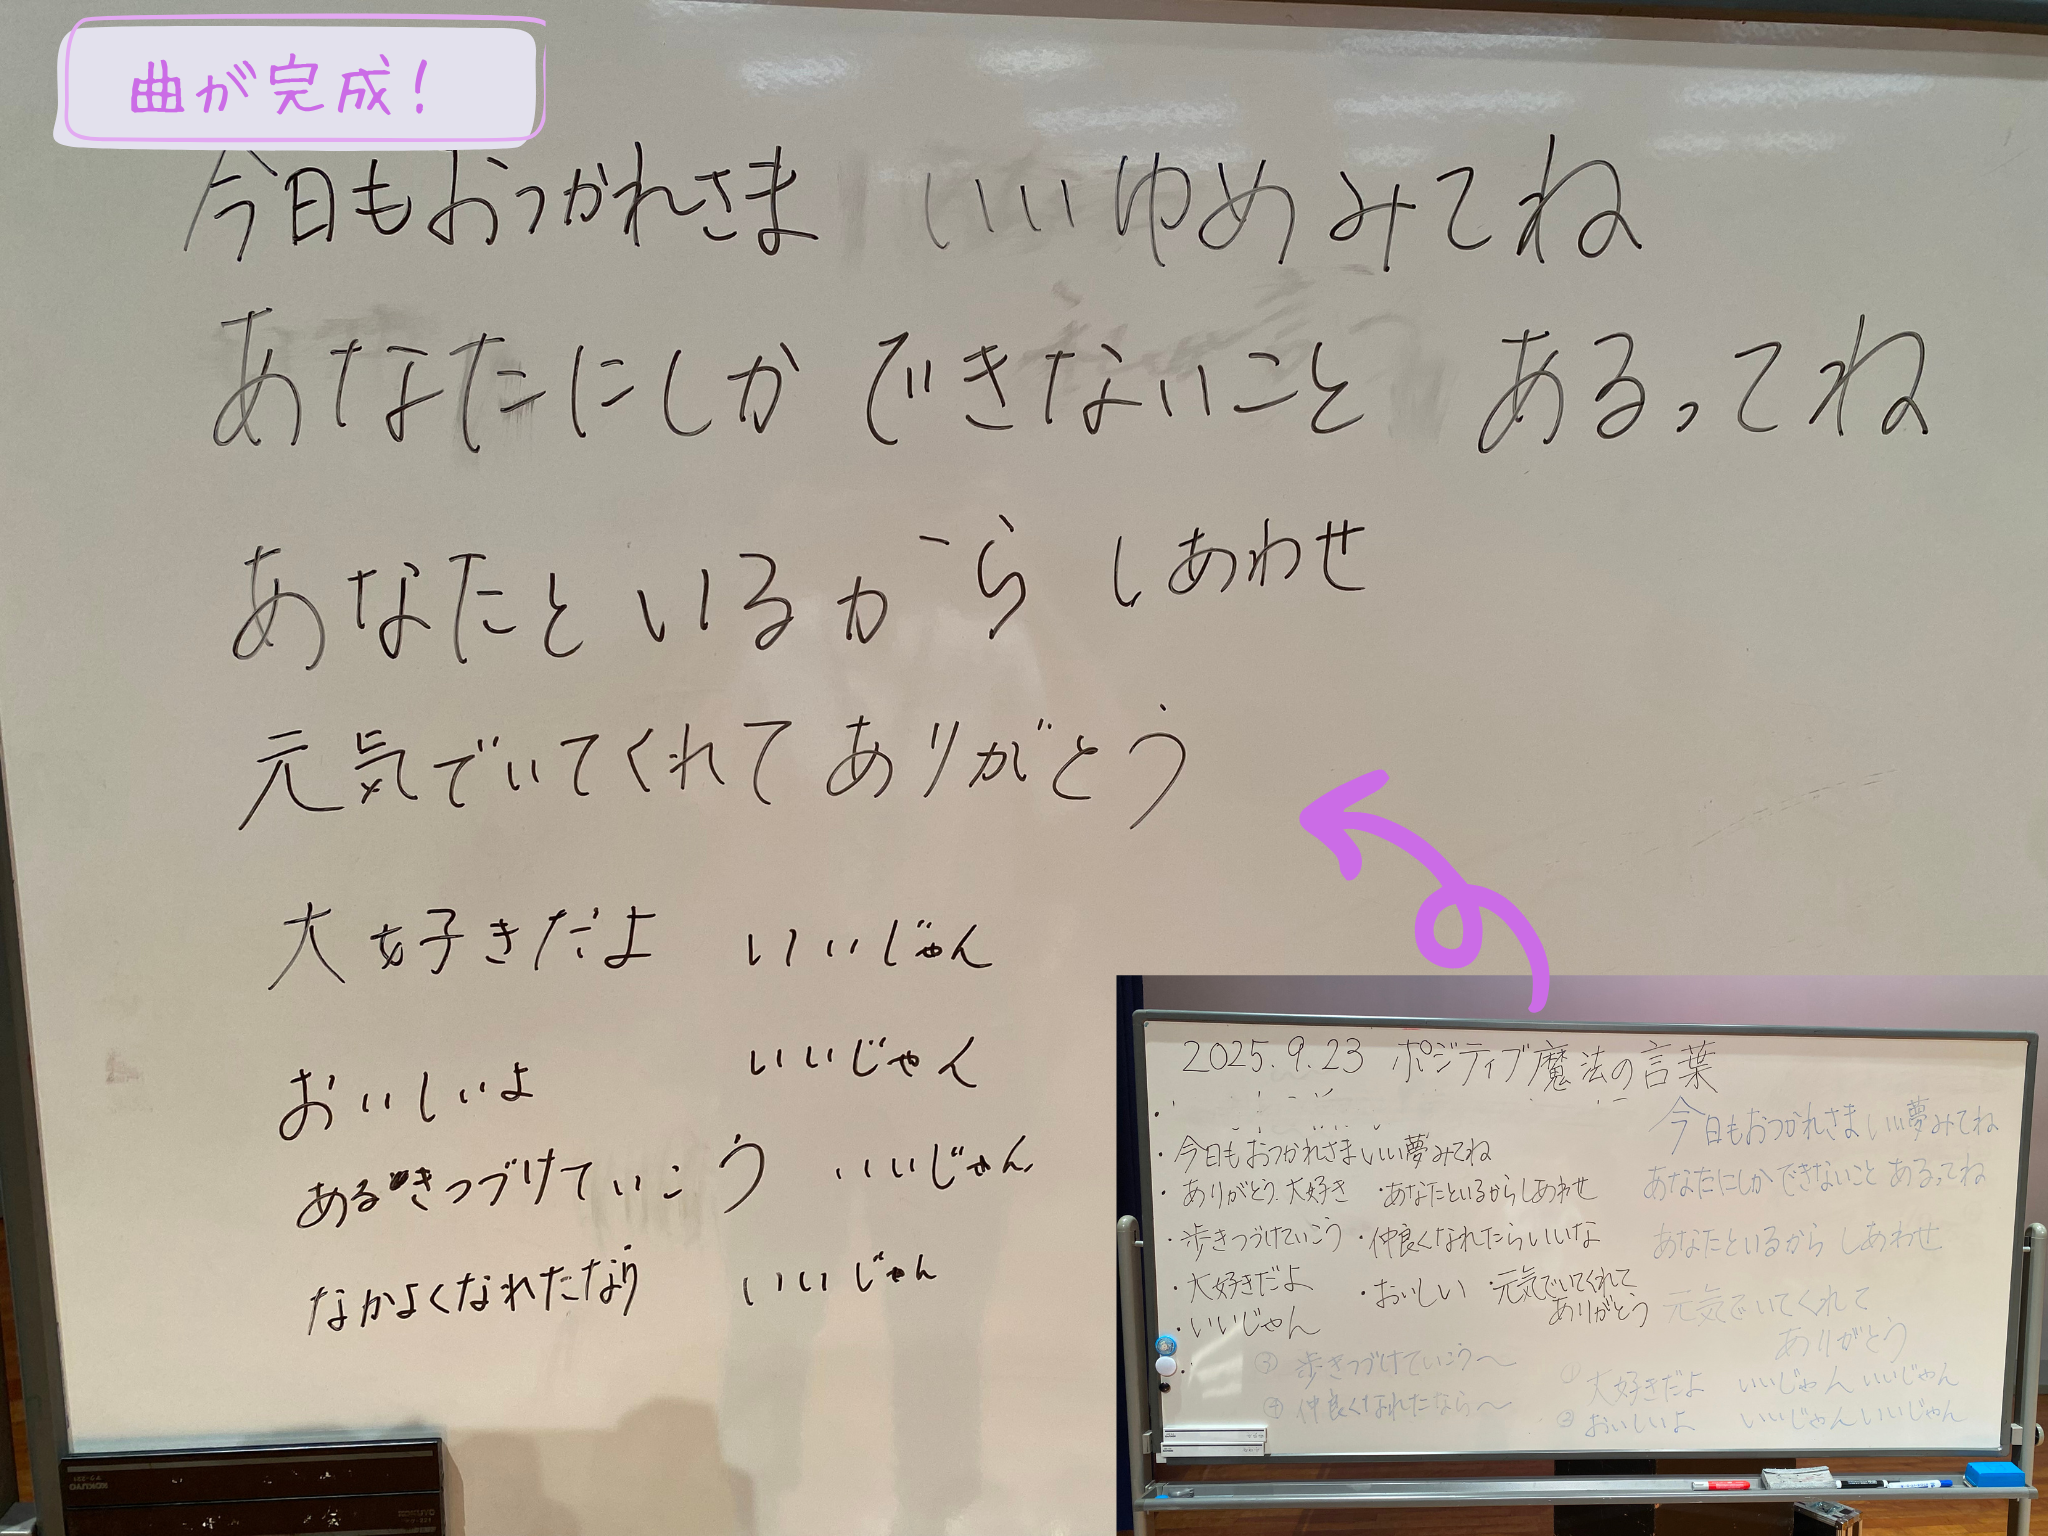 曲が完成!
今日もおつかれさま いいゆめみてね
あなたにしか できないこと あるってね
あなたといるから しあわせ
元気でいてくれて ありがとう
大好きだよ いいじゃん
おいしいよ いいじゃん
あるきつづけていこう いいじゃん
なかよくなれたなら いいじゃん
2025.9.23 ポジティブ魔法の言葉
・今日もおつかれさまいい夢みてね
・ありがとう.大好き ・あなたといるからしあわせ
・歩きつづけていこう ・仲良くなれたらいいな
・大好きだよ ・おいしい ・元気でいてくれて
ありがとう
・いいじゃん
③ 歩きつづけていこう〜
④ 仲良くなれたなら〜
今日もおつかれさま いい夢みてね
あなたにしか できないこと あるってね
あなたといるから しあわせ
元気でいてくれて
ありがとう
① 大好きだよ いいじゃん いいじゃん
② おいしいよ いいじゃん いいじゃん